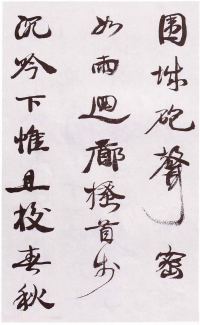 圍城砲聲密
如雨迴廊搔首步
沉吟下帷且校春秋